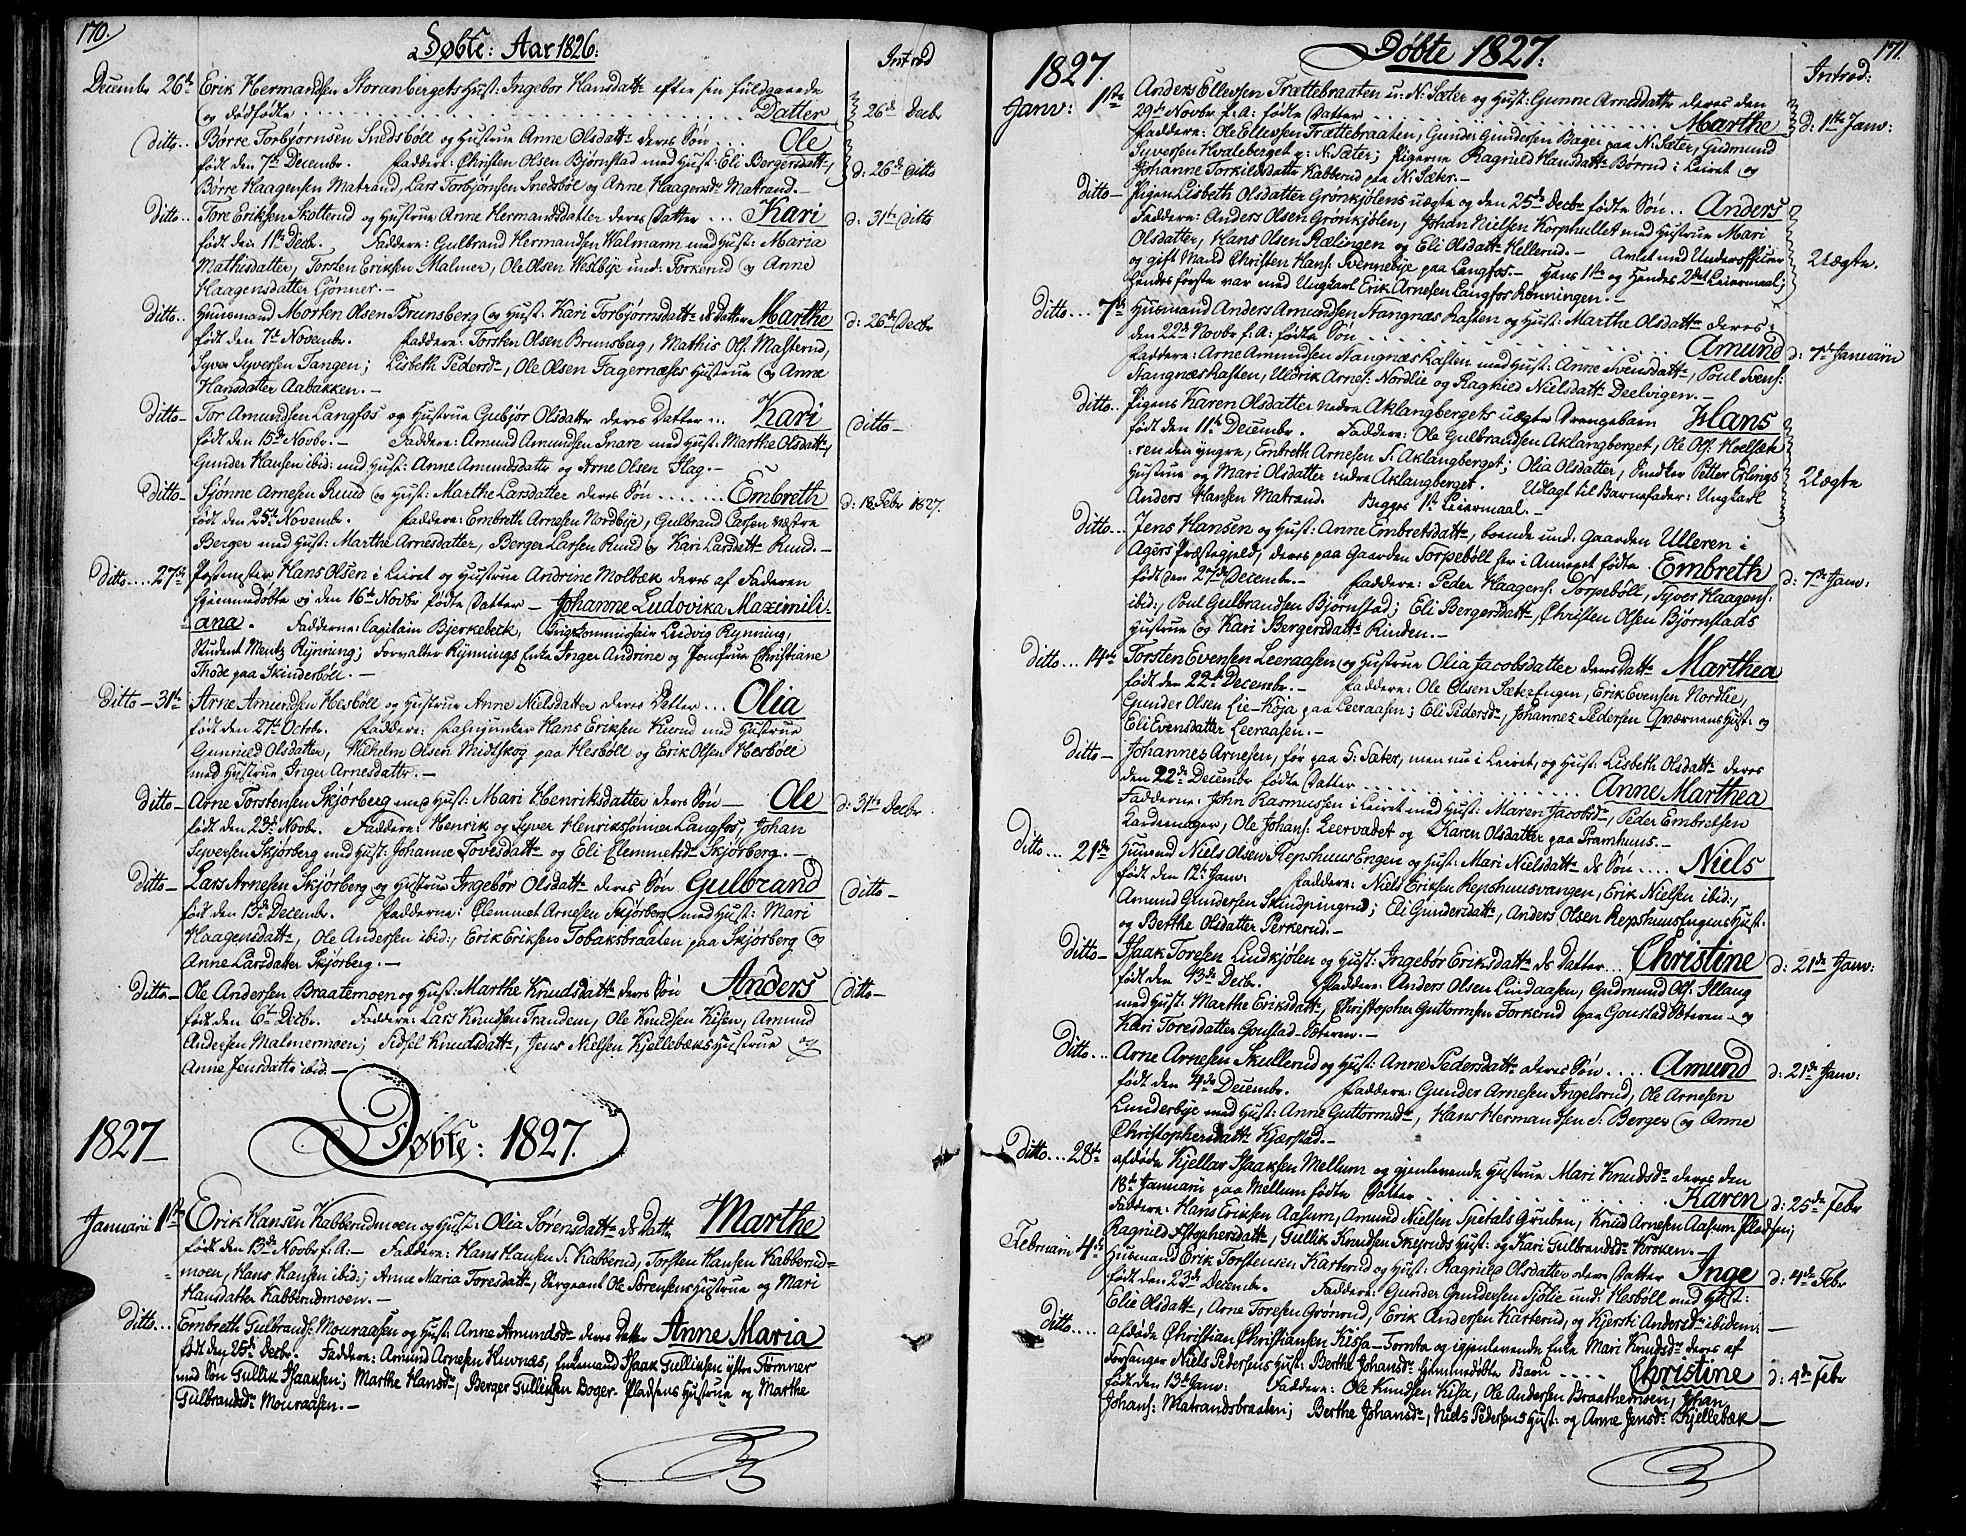 170.
Døbte: Aar 1826:
Introd
Decembr 26de Erik Hermandsen Storanbergets Hust: Ingebor Hansdattr efter sin fuldgaaede
og dødfødte ... Datter
26de Decbr
Ditto.. Børre Torbjørnsen Snedsböll og Hustrue Anne Olsdattr deres Søn ... Ole
født den 7de Decembr. Faddere: Christen Olsen Bjørnstad med Hust: Eli Bergersdattr,
d: 26de Ditto
Børre Haagensen Matrand, Lars Torbjørnsen Snedsböl og Anne Haagensdr Matrand.-
Ditto.. Tore Eriksen Skotterud og Hustrue Anne Hermandsdatter deres Datter ... Kari
d: 31te Ditto
født den 11te Decbr. Faddere: Gulbrand Hermandsen Walmann med Hust: Maria
Mathisdatter, Torsten Eriksen Malmer, Ole Olsen Westbye und: Torkerud og Anne
Haagensdatter Gjønner.-
Ditto.. Huusmand Morten Olsen Brunsberg og Hust: Kari Torbjørnsdattr ds Datter Marthe
d: 26de Decbr
født den 7de Novembr. Faddere: Torsten Olsen Brunsberg, Mathis Ols: Masterud,
Syver Syversen Tangen; Lisbeth Pedersdr, Ole Olsen Fagernæses Hustrue og Anne
Hansdatter Aabakken.-
Ditto- Tor Amundsen Langfos og Hustrue Gubjør Olsdattr deres Datter ... Kari
Ditto-
født den 15de Novbr.- Faddere: Amund Amundsen Snare med Hust: Marthe Olsdattr,
Gunder Hansen ibid: med Hust: Anne Amundsdattr og Arne Olsen Flag.-
Ditto- Sjønne Arnesen Ruud og Hust: Marthe Larsdatter deres Søn ....... Embreth
d: 18 Febr 1827.
født den 25de Novembr. Faddere: Embreth Arnesen Nordbye, Gulbrand Larsen næstre
Berger med Hust: Marthe Arnesdatter, Berger Larsen Ruud og Kari Larsdattr Ruud.-
Ditto.... 27de Postmester Hans Olsen i Leiret og Hustrue Andrine Molbæk deres af Faderen
hjemmedøbte og den 16de Novbr fødte Datter - Johanne Ludovika Maximili-
ana. Fadderne: Capitain Bjerkebeik, Krigscommissair Ludvig Rynning,
Student Mentz Rynning; Forvalter Rynnings Enke Inger Andrine og Jomfrue Christiane
Thode paa Skinderböl.-
Ditto - 31te Arne Amundsen Hesböll og Hustrue Anne Nielsdatter deres Datter ... Olia
født den 27de Octobr. Faddere: Fahnjunker Hans Eriksen Kurud med Hustrue
Gunnild Olsdatter, Wilhelm Olsen Midtskog paa Hesböll og Erik Olsen Hesböll
med Hustrue Inger Arnesdattr.-
ditto- Arne Torstensen Skjørberg med Hust: Mari Henriksdatter deres Søn - Ole
d: 31te Decbr
født den 23de Novbr. Faddere: Henrik og Syver Henriksønner Langfos, Johan
Syversen Skjørberg med Hust: Johanne Tovesdattr og Eli Clemmetsdr Skjørberg.-
Ditto- Lars Arnesen Skjørberg og Hustrue Ingebør Olsdattr deres Søn Gulbrand
Ditto-
født den 13de Decembr. Fadderne: Clemmet Arnesen Skjørberg med Hust: Mari
Haagensdattr, Ole Andersen ibid:, Erik Eriksen Tobaksbraaten paa Skjørberg og
Anne Larsdatter Skjørberg.-
Ditto- Ole Andersen Braatemoen og Hust: Marthe Knudsdattr deres Søn Anders
Ditto-
født den 6te Decbr. Faddere: Lars Knudsen Trandem, Ole Knudsen Kisen, Amund
Andersen Malmermoen; Sidsel Knudsdattr, Jens Nielsen Kjellebæks Hustrue og
Anne Jensdattr ibid.-
1827 - Døbte: 1827.
Januarii 1ste Erik Hansen Kabberudmoen og Hust: Olia Sørensdattr ds Dattr Marthe
født den 13de Novbr f: A.- Faddere: Hans Hansen S. Kabberud, Torsten Hansen Kabberud-
moen, Hans Hansen ibid:; Anne Maria Toresdattr, Sergeant Ole Sørensens Hustrue og Mari
Hansdatter Kabberudmoen.-
Ditto... Embreth Gulbrands: Mouraasen og Hust: Anne Amundsdr deres Datter Anne Maria
født den 25de Decbr. Faddere: Amund Arnesen Huvnæs, Enkemand Isaak Gulliksen østre Tømner
med Søn Gullik Isaaksen; Marthe Hansdr, Berger Gulliksen Boger-Pladsens Hustrue og Marthe
Gulbrandsdr Mouraasen.-
171.
Døbte 1827:
1827.
Introd:
Janv: 1ste Anders Ellevsen Trættebraaten u: N: Sæter og Hust: Gunne Arnesdatter deres den
29de Novbr f: A: fødte Datter ... Marthe
d: 1ste Janv:
Faddere: Ole Ellevsen Trættebraaten, Gunder Gundersen Bager paa N: Sæter, Gudmund
Syversen Hvaleberget u: N: Sæter; Pigerne Ragnild Hansdattr Børrud i Leiret og
Johanne Torkildsdattr Kabberud paa N: Sæter.-
Ditto- Pigen Lisbeth Olsdatter Grønkjølens uægte og den 25de Decbr fødte Søn .. Anders
Faddere: Anders Olsen Grønkjølen, Johan Nielsen Korphullet med Hustrue Mari
Olsdatter, Hans Olsen Rælingen og Eli Olsdattr Hellerud.- Avlet med Underofficeer
Uægte.
og gift Mand Christen Hans: Svennebye paa Langfos.- Hans 1ste og Hendes 2det Leiermaal;
hendes første var med Ungkarl Erik Arnesen Langfos Rønningen.-
Ditto... 7de Huusmand Anders Amundsen Stangnæs Kasten og Hust: Marthe Olsdattr deres
den 22de Novbr f: A: fødte Søn ... Amund
d: 7de Januarii
Faddere: Arne Amundsen Stangnæs Kasten med Hust: Anne Svensdattr, Poul Svens:
Stangnæs Kasten, Uldrik Arnes: Nordlie og Ragnild Nielsdattr Deelvigen.-
Ditto.. Pigens Karen Olsdatter nedre Aklangbergets uægte Drengebarn Hans
født den 11te Decembr. Faddere: Ole Gulbrandsen Aklangberget, Ole Ols: Hoelsæt-
ren den yngre, Embreth Arnesen S: Aklangberget; Olia Olsdatter, Snedker Petter Erlings
Hustrue og Mari Olsdatter nedre Aklangberget. Udlagt til Barnefader: Ungkarl
Uægte
Anders Hansen Matrand. Begges 1ste Leiermaal.-
Ditto... Jens Hansen og Hust: Anne Embretsdattr, boende und: Gaarden Ulleren i
Agers Præstegjeld, deres paa Gaarden Torpeböll her i Annexet fødte Embreth
d: 7de Janv:
født den 27de Decembr.- Faddere: Peder Haagens: Torpeböll, Syver Haagens:
ibid:, Poul Gulbrandsen Bjørnstad; Eli Bergersdattr, Christen Olsen Bjørnstads
Hustrue og Kari Bergersdattr Rinden.-
Ditto... 14de Torsten Evensen Leeraasen og Hustrue Olia Jacobsdatter deres Dattr Marthea
født den 22de Decembr.- Faddere: Ole Olsen SæterEngen, Erik Evensen Nordlie,
Gunder Olsen Lie-Koja paa Leeraasen; Eli Pedersdr, Johannes Pedersen Qværnens Hust: og
Eli Evensdatter Leeraasen.-
Ditto- Johannes Arnesen, før paa S: Sæter, men nu i Leiret, og Hust: Lisbeth Olsdattr deres
den 22de Decembr fødte Datter ... Anne Marthea
Fadderne: John Rasmussen i Leiret med Hust: Maren Jacobsdr, Peder Embretsen
Kardemager, Ole Johans: Leervadet og Karen Olsdatter paa Framhuus.-
Ditto... 21de Huusmd Niels Olsen Repshuus Engen og Hust: Mari Nielsdattr ds Søn .... Niels
født den 12te Janv: Faddere: Niels Eriksen Repshuusvangen, Erik Nielsen ibid:,
Amund Gundersen Skindpingrud; Eli Gundersdattr, Anders Olsen RepshuusEngens Hust.
og Berthe Olsdatter Perkerud.-
Ditto- Isaak Toresen Lindkjølen og Hust: Ingebør Eriksdattr ds Datter... Christine
d: 21de Janv:
født den 13de Decbr. Faddere: Anders Olsen Lindaasen, Gudmund Ols: Illaug
med Hust: Marthe Eriksdattr, Christopher Guttormsen Torkerud paa Goustad Sæteren og
Kari Toresdatter Goustad-Sæteren.-
Ditto... Arne Arnesen Skullerud og Hust: Anne Pedersdattr deres Søn .... Amund
d: 21de Janv:
født den 4de Decembr. Faddere: Gunder Arnesen Ingelsrud, Ole Arnesen
Lunderbye med Hust: Anne Guttormsdr, Hans Hermandsen S: Berger og Anne
Christophersdattr Kjærstad.-
Ditto... 28de Afdøde Kjellar Isaaksen Mellum og gjenlevende Hustrue Mari Knudsdr deres den
18de Januarii paa Mellum fødte Datter ... Karen
d: 25de Febr
Faddere: Hans Eriksen Aasum, Amund Nielsen Spetals Gruben, Knud Arnesen Aasum Pladsen;
Ragnild Istophersdattr, Gullik Knudsen Skesruds Hust: og Kari Gulbrandsdr Kroken.-
Februarii 4de Huusmand Erik Torstensen Karterud og Hust: Ragnild Olsdatter deres Datter Inge
d: 4de Febr
født den 23de Decembr. Faddere: Gunder Gundersen Sjølie und: Hesböll med Hust:
Elie Olsdattr, Arne Toresen Grønrud, Erik Andersen Karterud, og Kjersti Andersdr ibidem:-
Ditto.... Afdøde Christian Christiansen Kissa-Tomta og igjenlevende Enke Mari Knudsdr deres af
Forsanger Niels Pedersens Hust: Berthe Johansdr hjemmedøbte Barn .... Christine
d: 4de Febr
født den 13de Janv: Faddere: Ole Knudsen Kisa, Ole Andersen Braathemoen, Johan
Johans: Matrandsbraaten; Berthe Johansdr, Niels Pedersens Hust: og Anne Jensdr Kjellebæk -